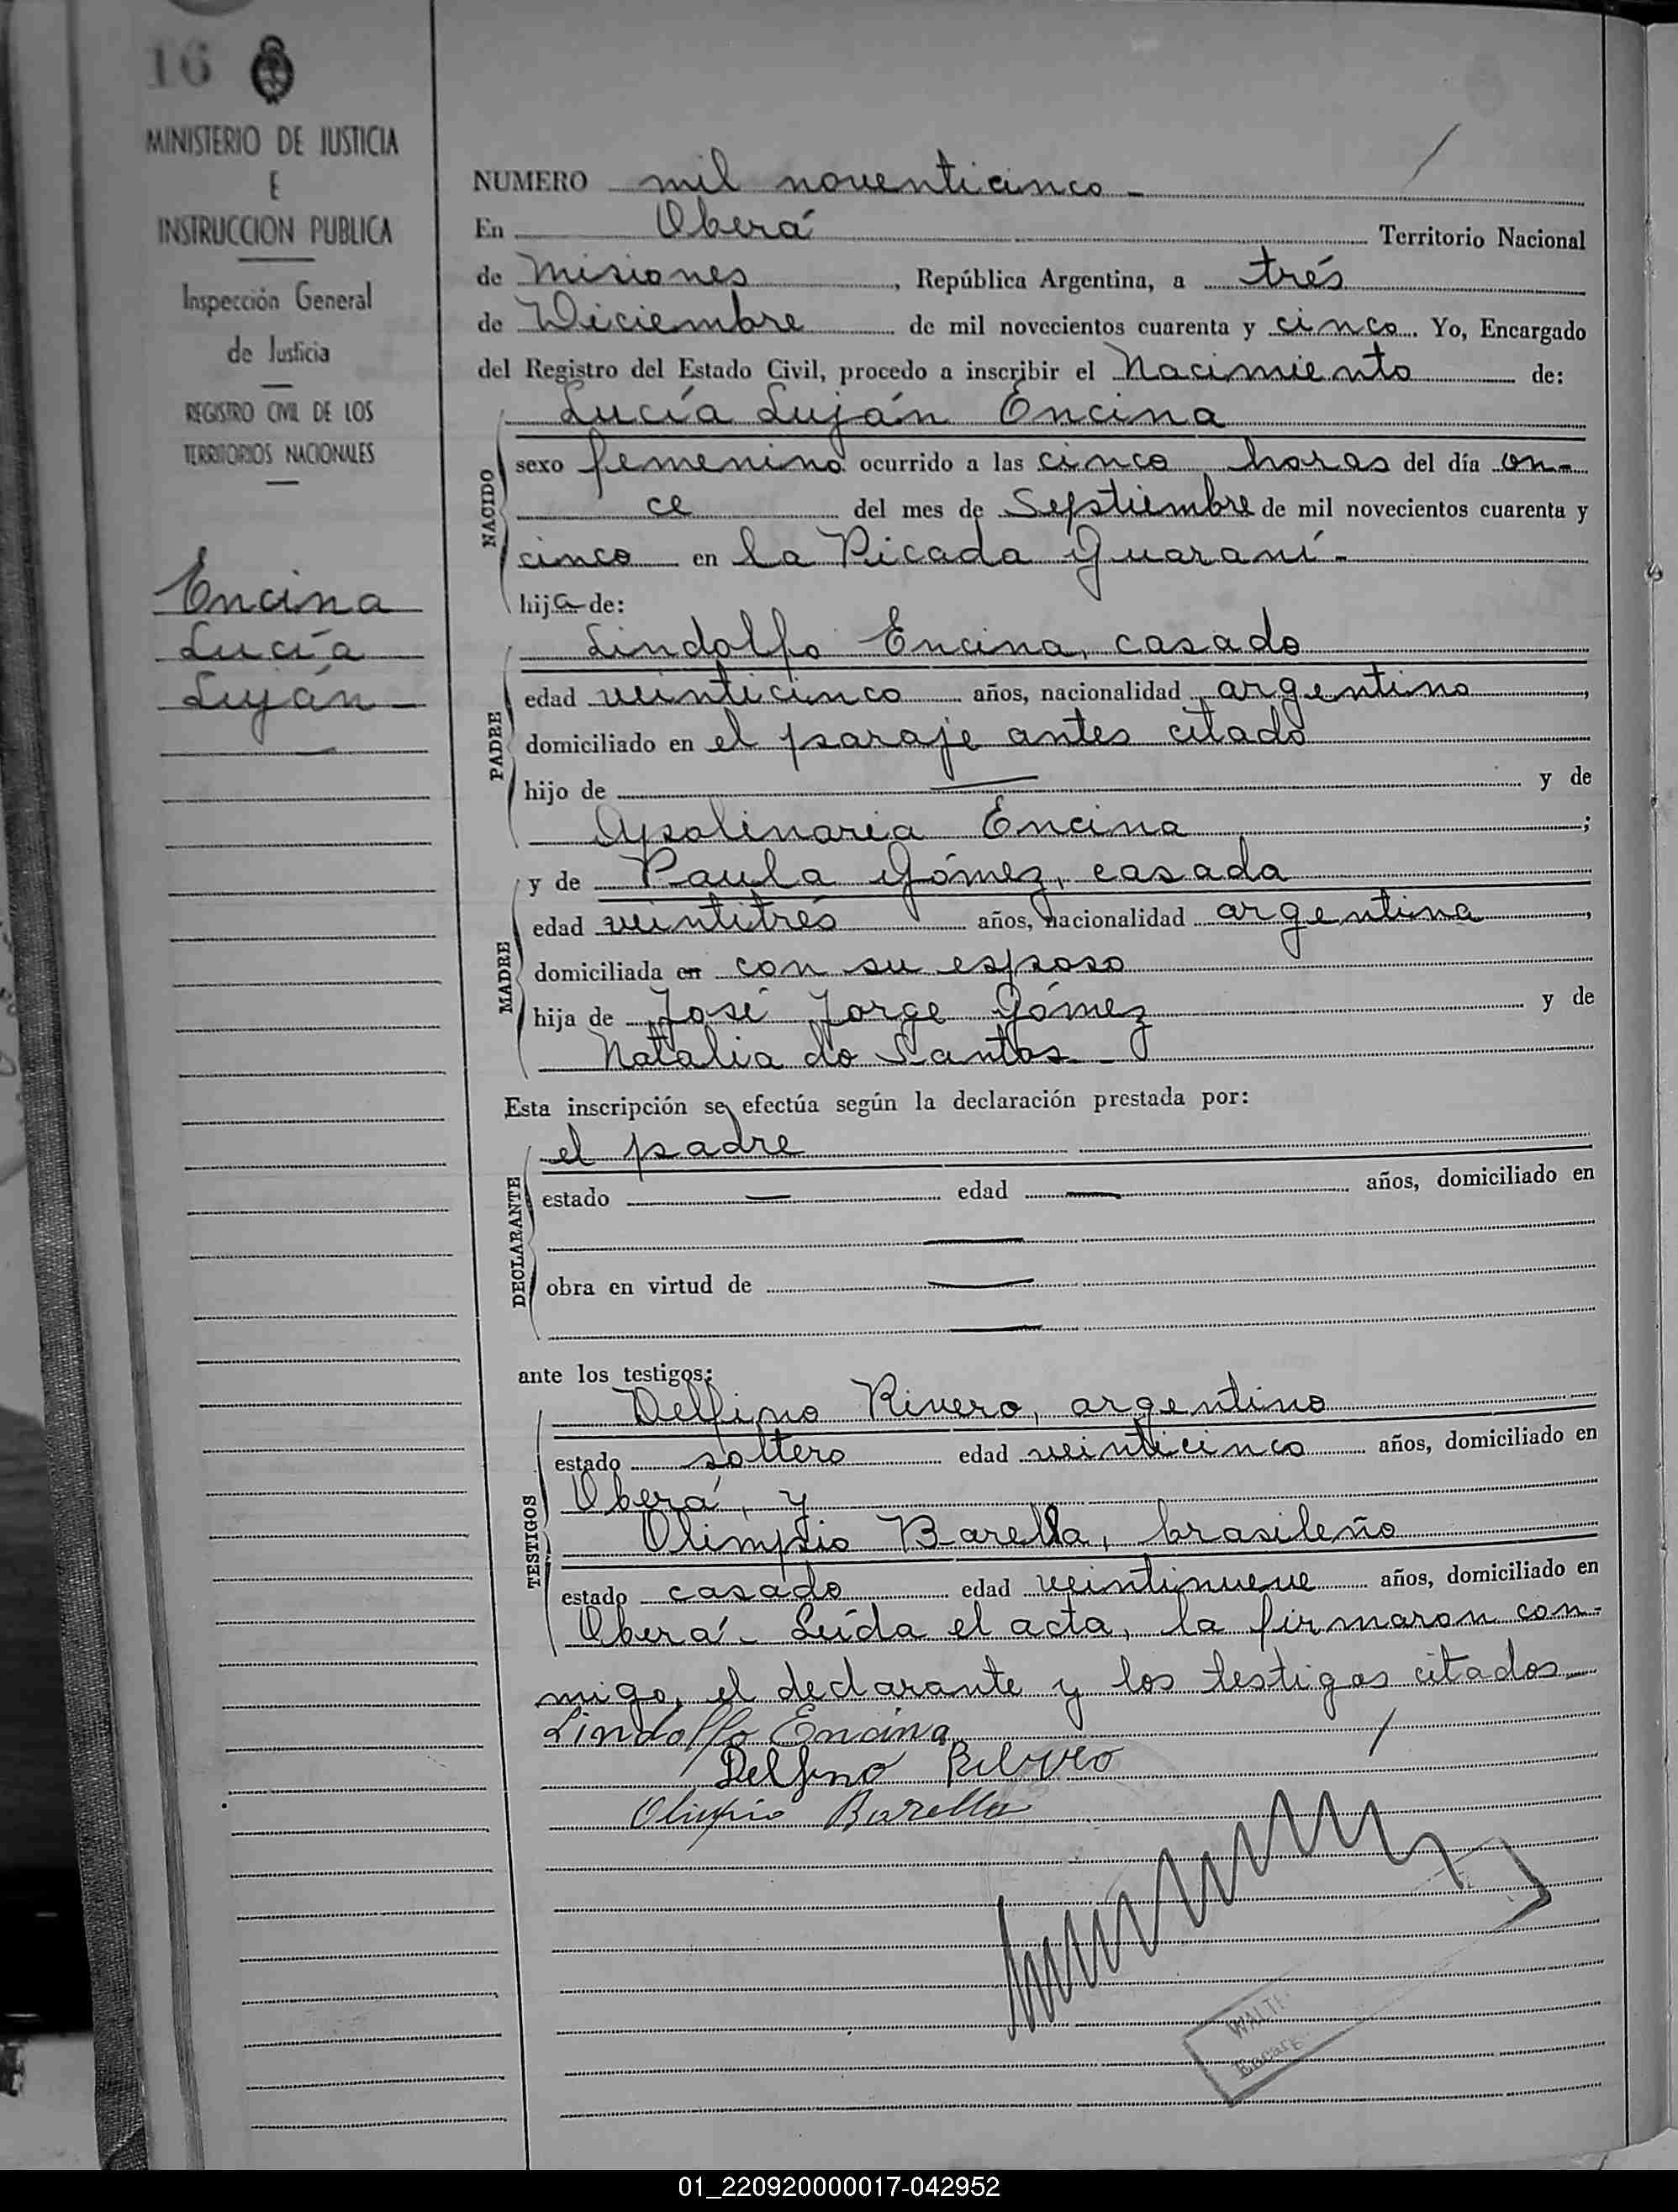 16
MINISTERIO DE JUSTICIA
E
INSTRUCCION PUBLICA
Inspección General
de Justicia
REGISTRO CIVIL DE LOS
TERRITORIOS NACIONALES
Encina
Lucía
Luján
NUMERO mil noventicinco
En Oberá Territorio Nacional
de Misiones, República Argentina, a trés
de Diciembre de mil novecientos cuarenta y cinco. Yo, Encargado
del Registro del Estado Civil, procedo a inscribir el Nacimiento de:
Lucía Luján Encina
NACIDO
sexo femenino ocurrido a las cinco horas del día on-
ce del mes de Septiembre de mil novecientos cuarenta y
cinco en la Picada Guaraní-
hija de:
Lindolfo Encina, casado
PADRE
edad veinticinco años, nacionalidad argentino,
domiciliado en el paraje antes citado
hijo de — y de
Apolinaria Encina;
y de Paula Gómez, casada
MADRE
edad veintitrés años, nacionalidad argentina,
domiciliada en con su esposo
hija de José Jorge Gómez y de
Natalia do Santos-
Esta inscripción se efectúa según la declaración prestada por:
el padre
DECLARANTE
estado — edad — años, domiciliado en
obra en virtud de —
ante los testigos:
Delfino Rivero, argentino
TESTIGOS
estado soltero edad veinticinco años, domiciliado en
Oberá, y
Olimpio Barella, brasileño
estado casado edad veintinueve años, domiciliado en
Oberá.- Leída el acta, la firmaron con-
migo, el declarante y los testigos citados
Lindolfo Encina
Delfino Rivero
Olimpio Barella
WALT
Encarg
01_220920000017-042952